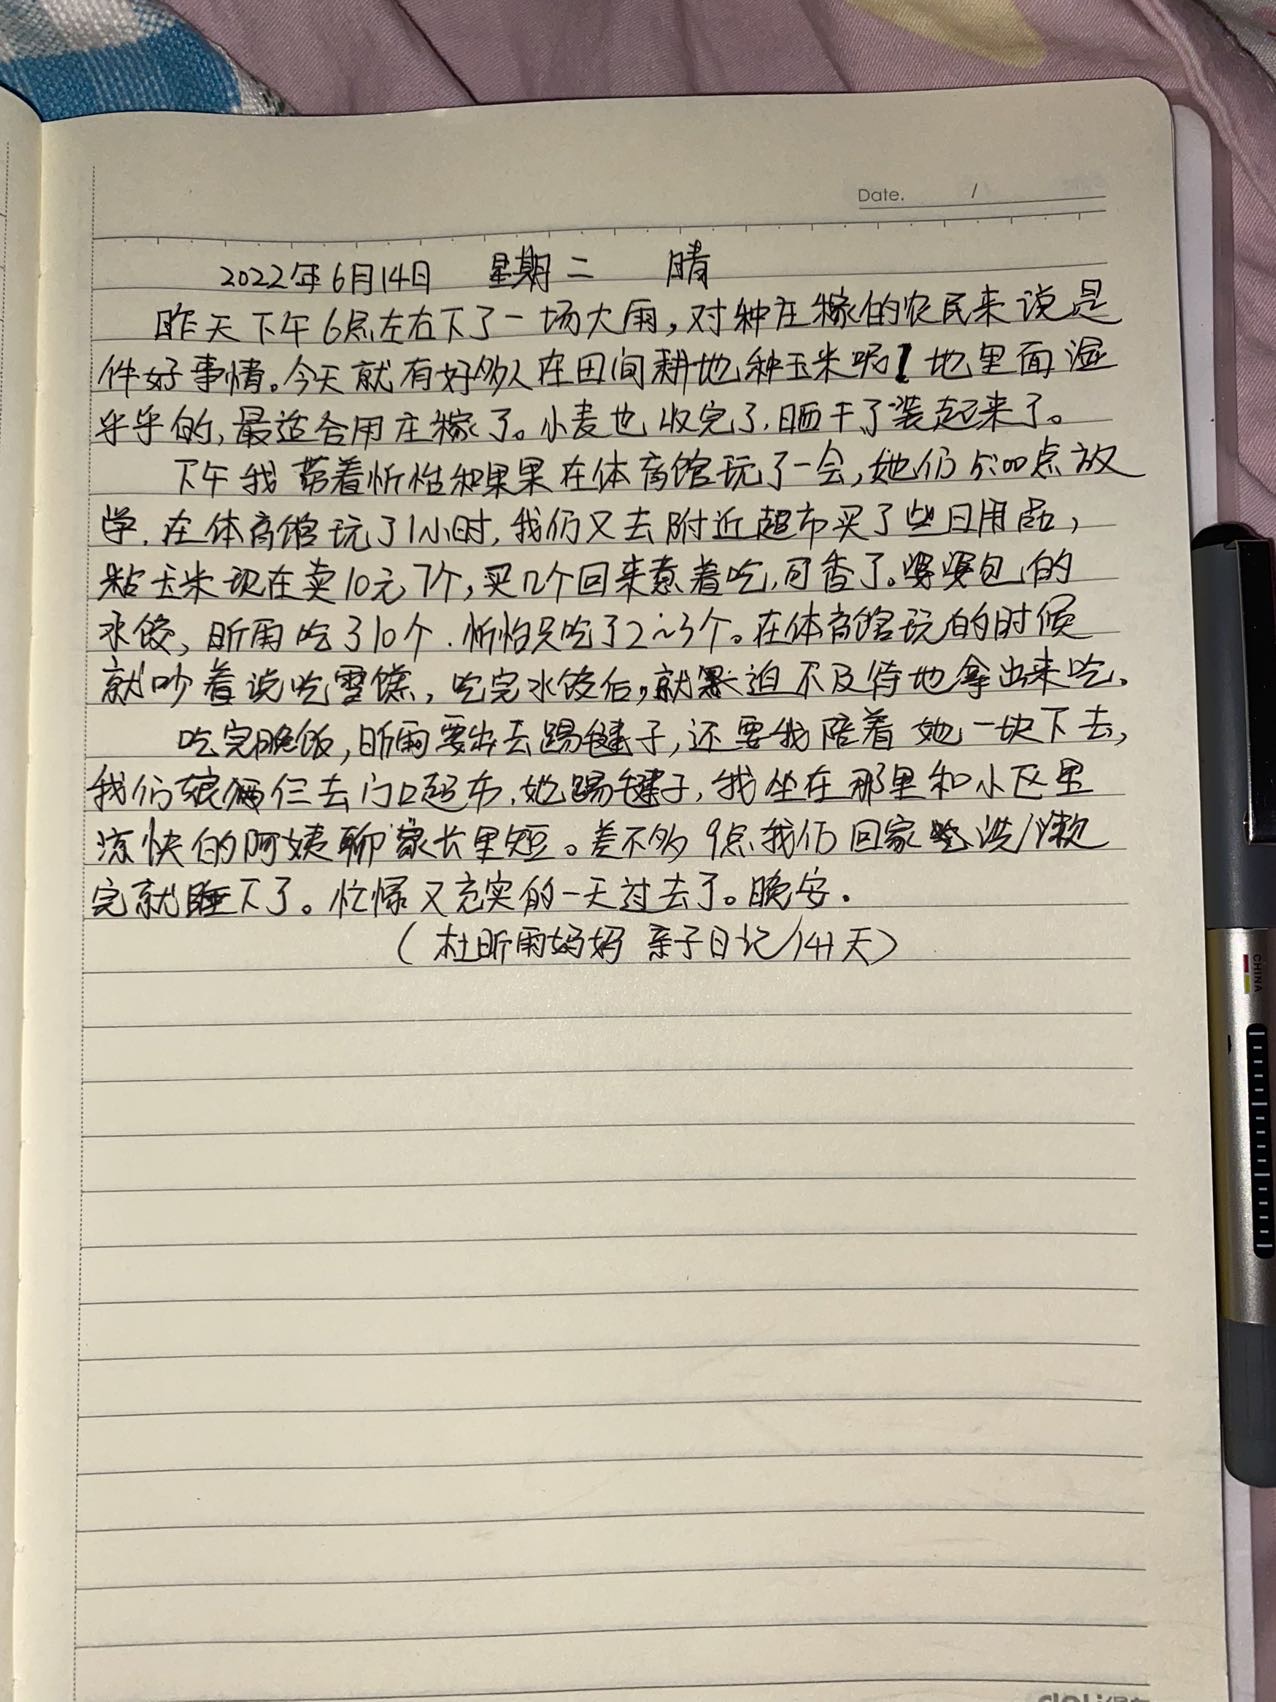 Date. /
2022年6月14日 星期二 晴
昨天下午6点左右下了一场大雨，对种庄稼的农民来说是
件好事情。今天就有好多人在田间耕地种玉米呢！地里面湿
乎乎的，最适合用庄稼了。小麦也收完了，晒干了装起来了。
下午我带着忻怡和果果在体育馆玩了一会，她们5:00点放
学，在体育馆玩了1小时，我们又去附近超市买了些日用品，
粘玉米现在卖10元7个，买几个回来煮着吃，可香了。婆婆包的
水饺，昕雨吃了10个，忻怡只吃了2~3个。在体育馆玩的时候
就吵着说吃雪糕，吃完水饺后，就迫不及待地拿出来吃。
吃完晚饭，昕雨要出去踢毽子，还要我陪着她一块下去，
我们娘俩仨去门口超市，她踢毽子，我坐在那里和小区里
凉快的阿姨聊家长里短。差不多9点我们回家洗漱
完就睡下了。忙碌又充实的一天过去了。晚安.
（杜昕雨妈妈 亲子日记141天）
CHINA